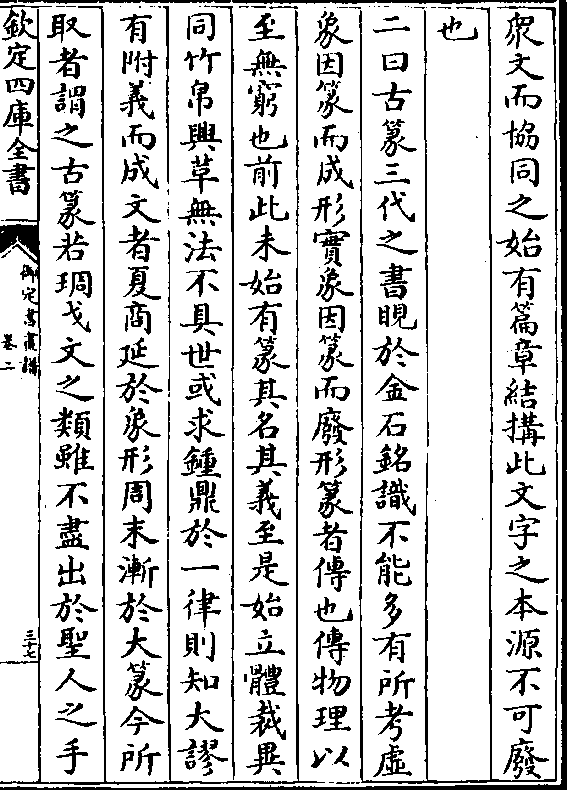 衆文而協同之始有篇章結搆此文字之本源不可廢
也
二曰古篆三代之書睍於金石銘識不能多有所考虛
象因篆而成形實象因篆而廢形篆者傳也傳物理以
至無窮也前此未始有篆其名其義至是始立體裁異
同竹帛興草無法不具世或求鍾鼎於一律則知大謬
有附義而成文者夏商延於象形周末漸於大篆今所
取者謂之古篆若琱戈文之類雖不盡出於聖人之手
欽定四庫全書
御定書畫譜
卷二
三十七